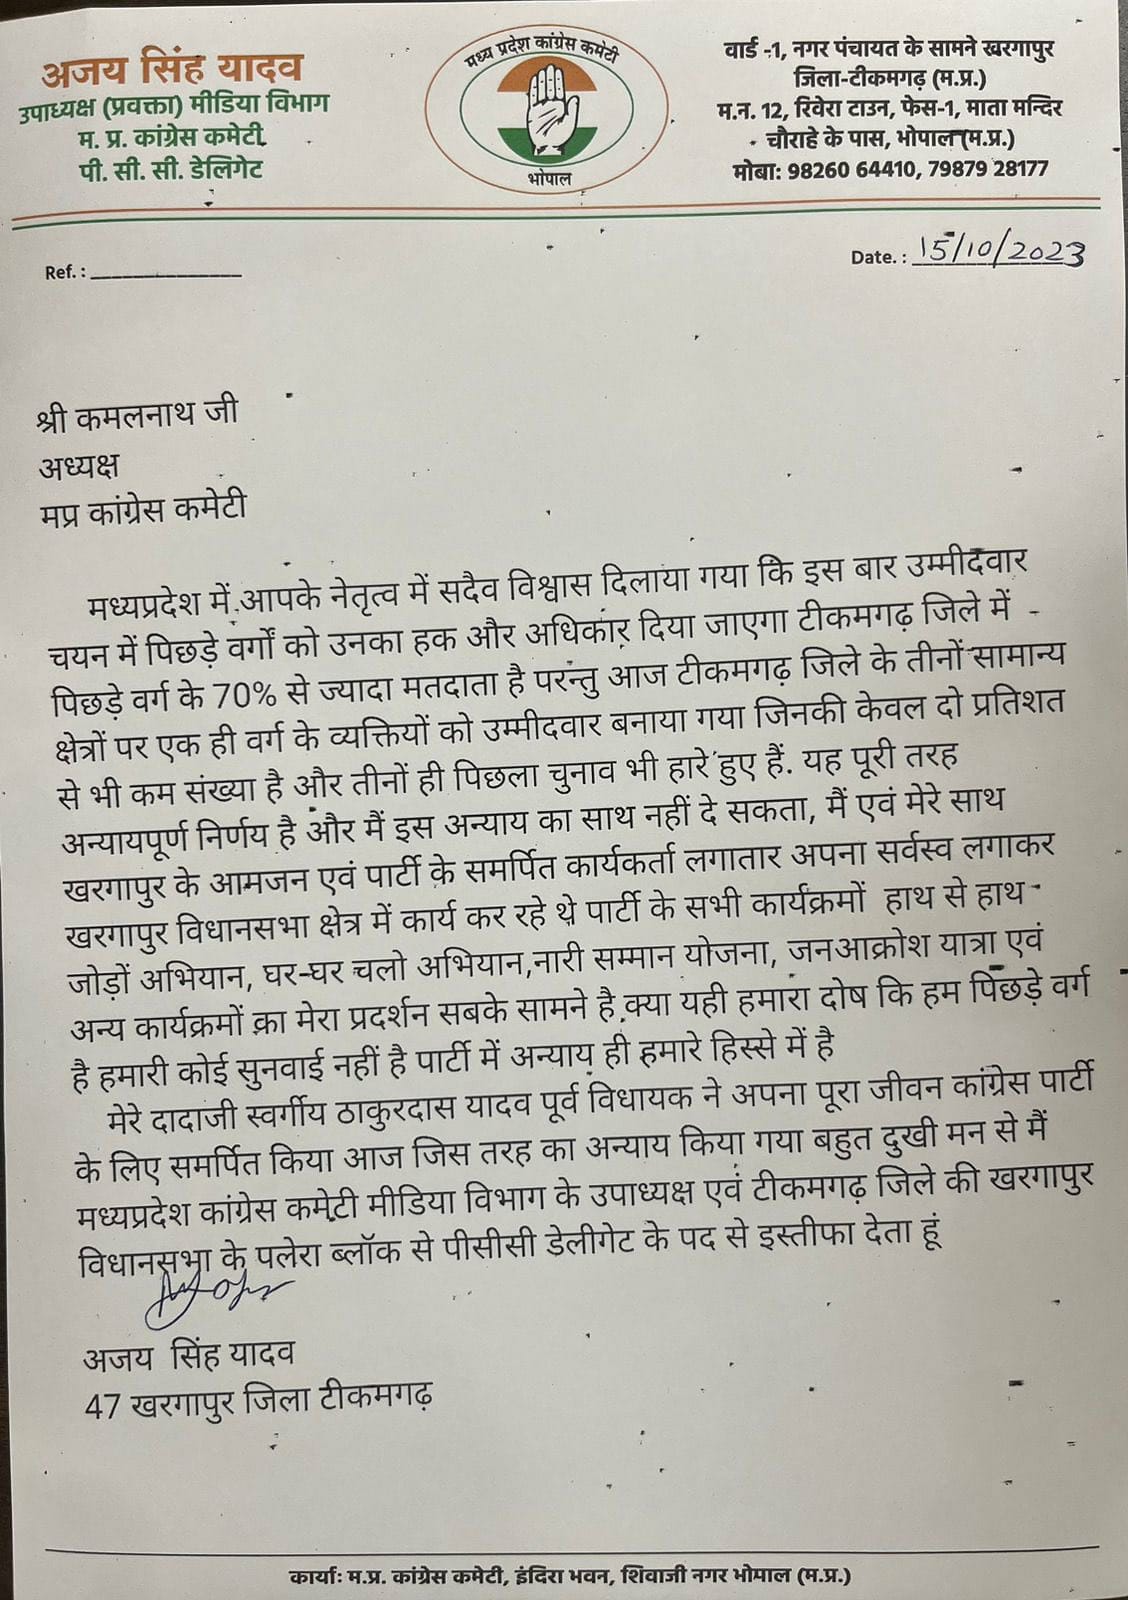 अजय सिंह यादव
उपाध्यक्ष (प्रवक्ता) मीडिया विभाग
म. प्र. कांग्रेस कमेटी
पी. सी. सी. डेलिगेट
मध्य प्रदेश कांग्रेस कमेटी
भोपाल
वार्ड -1, नगर पंचायत के सामने खरगापुर
जिला-टीकमगढ़ (म.प्र.)
म.न. 12, रिवेरा टाउन, फेस-1, माता मन्दिर
चौराहे के पास, भोपाल (म.प्र.)
मोबा: 98260 64410, 79879 28177
Ref. :
Date. : 15/10/2023
श्री कमलनाथ जी
अध्यक्ष
मप्र कांग्रेस कमेटी
मध्यप्रदेश में आपके नेतृत्व में सदैव विश्वास दिलाया गया कि इस बार उम्मीदवार
चयन में पिछड़े वर्गों को उनका हक और अधिकार दिया जाएगा टीकमगढ़ जिले में
पिछड़े वर्ग के 70% से ज्यादा मतदाता है परन्तु आज टीकमगढ़ जिले के तीनों सामान्य
क्षेत्रों पर एक ही वर्ग के व्यक्तियों को उम्मीदवार बनाया गया जिनकी केवल दो प्रतिशत
से भी कम संख्या है और तीनों ही पिछला चुनाव भी हारे हुए हैं. यह पूरी तरह
अन्यायपूर्ण निर्णय है और मैं इस अन्याय का साथ नहीं दे सकता, मैं एवं मेरे साथ
खरगापुर के आमजन एवं पार्टी के समर्पित कार्यकर्ता लगातार अपना सर्वस्व लगाकर
खरगापुर विधानसभा क्षेत्र में कार्य कर रहे थे पार्टी के सभी कार्यंक्रमों हाथ से हाथ
जोड़ों अभियान, घर-घर चलो अभियान,नारी सम्मान योजना, जनआक्रोश यात्रा एवं
अन्य कार्यक्रमों का मेरा प्रदर्शन सबके सामने है क्या यही हमारा दोष कि हम पिछड़े वर्ग
है हमारी कोई सुनवाई नहीं है पार्टी में अन्याय ही हमारे हिस्से में है
मेरे दादाजी स्वर्गीय ठाकुरदास यादव पूर्व विधायक ने अपना पूरा जीवन कांग्रेस पार्टी
के लिए समर्पित किया आज जिस तरह का अन्याय किया गया बहुत दुखी मन से मैं
मध्यप्रदेश कांग्रेस कमेटी मीडिया विभाग के उपाध्यक्ष एवं टीकमगढ़ जिले की खरगापुर
विधानसभा के पलेरा ब्लॉक से पीसीसी डेलीगेट के पद से इस्तीफा देता हूं
अजय सिंह यादव
47 खरगापुर जिला टीकमगढ़
कार्याः म.प्र. कांग्रेस कमेटी, इंदिरा भवन, शिवाजी नगर भोपाल (म.प्र.)